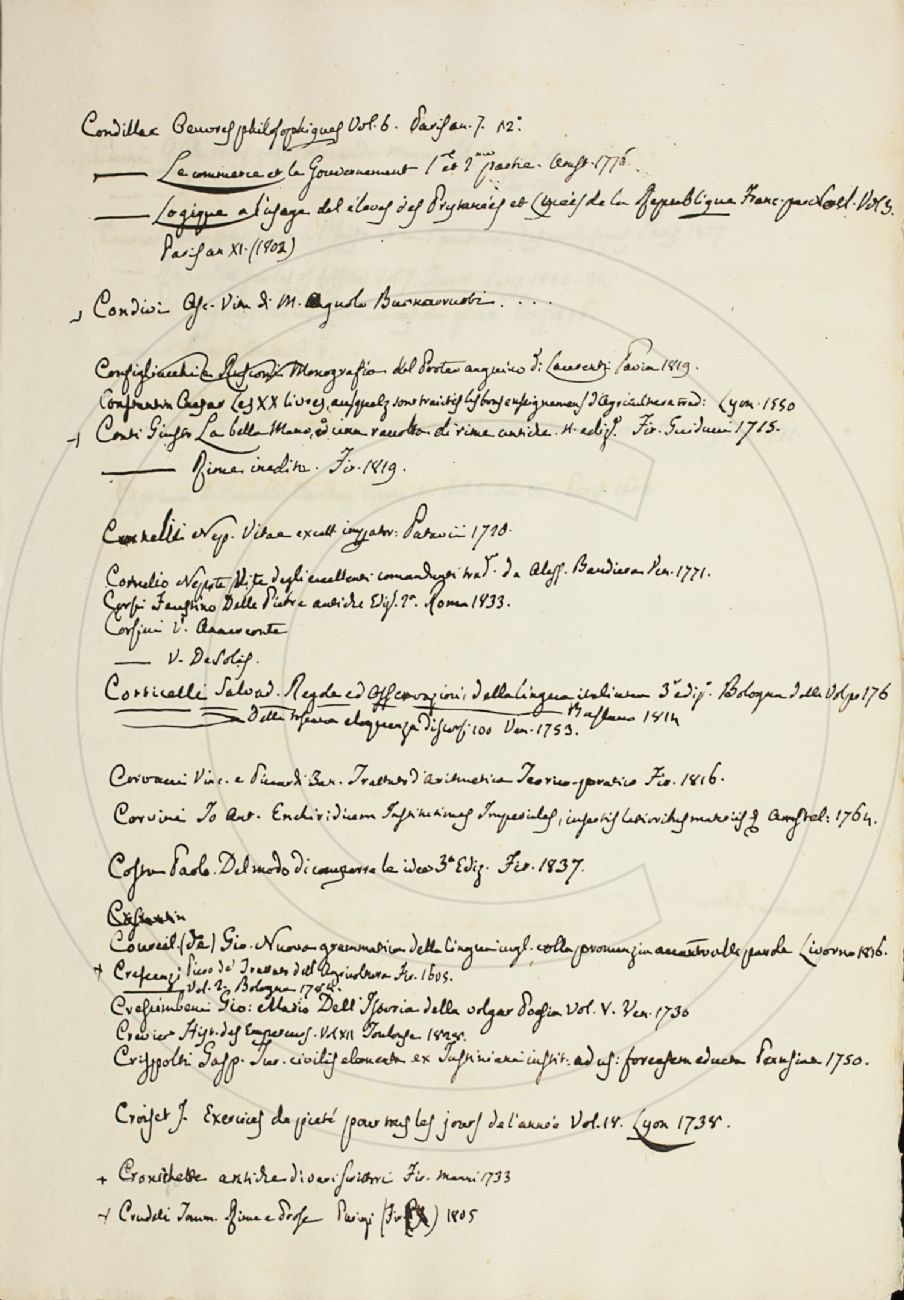 Condillac Oeuvres philosophiques Vol. 6. Paris an. 7. 12°.
—— Le commerce et le Gouvernement 1re et 2me partie. Amst. 1776.
—— Logique a l'usage del éleves des Prytanées et Lycées de la Republique Franc. par Vol 3.
Paris an XI. (1802)
Condivi Asc. Vita di M. Agnolo Buonarruoti . . . .
Configliacchi e Rusconi Monografia del Proteo anguino di Laurenti Pavia 1819.
Constantin Caesar Les XX livres, ausquelz sont traictés les bons enseignemens d'Agriculture trad: Lyon. 1550
Conti Giusto La bella Mano, ed una raccolta di rime antiche. Fir. Guiducci 1715.
—— Rime inedite. Fir. 1819.
Cornelii Nep. Vitae excell. imperator: Patavii 1720.
Cornelio Nepote Vite degli eccellenti comandanti trad. da Aless. Bandiera Ven. 1771.
Corsi Faustino Delle Pietre antiche Ediz. 2a. Roma 1833.
Corsini V. Anacreonte
—— V. De Solis.
Corticelli Salvad. Regole ed osservazioni della lingua italiana 3a ediz. Bologna della Volpe 176
Bassano 1814
—— Della toscana eloquenza discorsi 100 Ven. 1753.
Corvini Io Ant. Enchiridium Institutiones Imperiales, Amstel: 1764.
Costa Paolo. Del modo di comporre le idee 3a Ediz. Fir. 1837.
Coureil (de) Gio. Nuova grammatica della lingua ingl. colla pronunzia alle parole Livorno 1816.
+ Crescenzi Piero de' Trattato dell'Agricoltura Fir. 1605.
—— Vol. 2. Bologna
Crescimbeni Gio: Mario Dell'Istoria della volgar Poesia Vol. V. Ven. 1730
Crevier Hist. des Empereurs. Vol XII Toulouse 1828.
Crispolti Gasp. Jur. civilis elementa ex Justiniani instit. ad us: forensem educta Perusiae 1750.
Croiset J. Exercices de pieté pour tous les jours de l'année Vol. 18. Lyon 1738.
+ Cronichette antiche di vari scrittori Fir. Manni 1733
+ Crudeli Tomm. Rime e Prose Parigi (Fir.) 1805